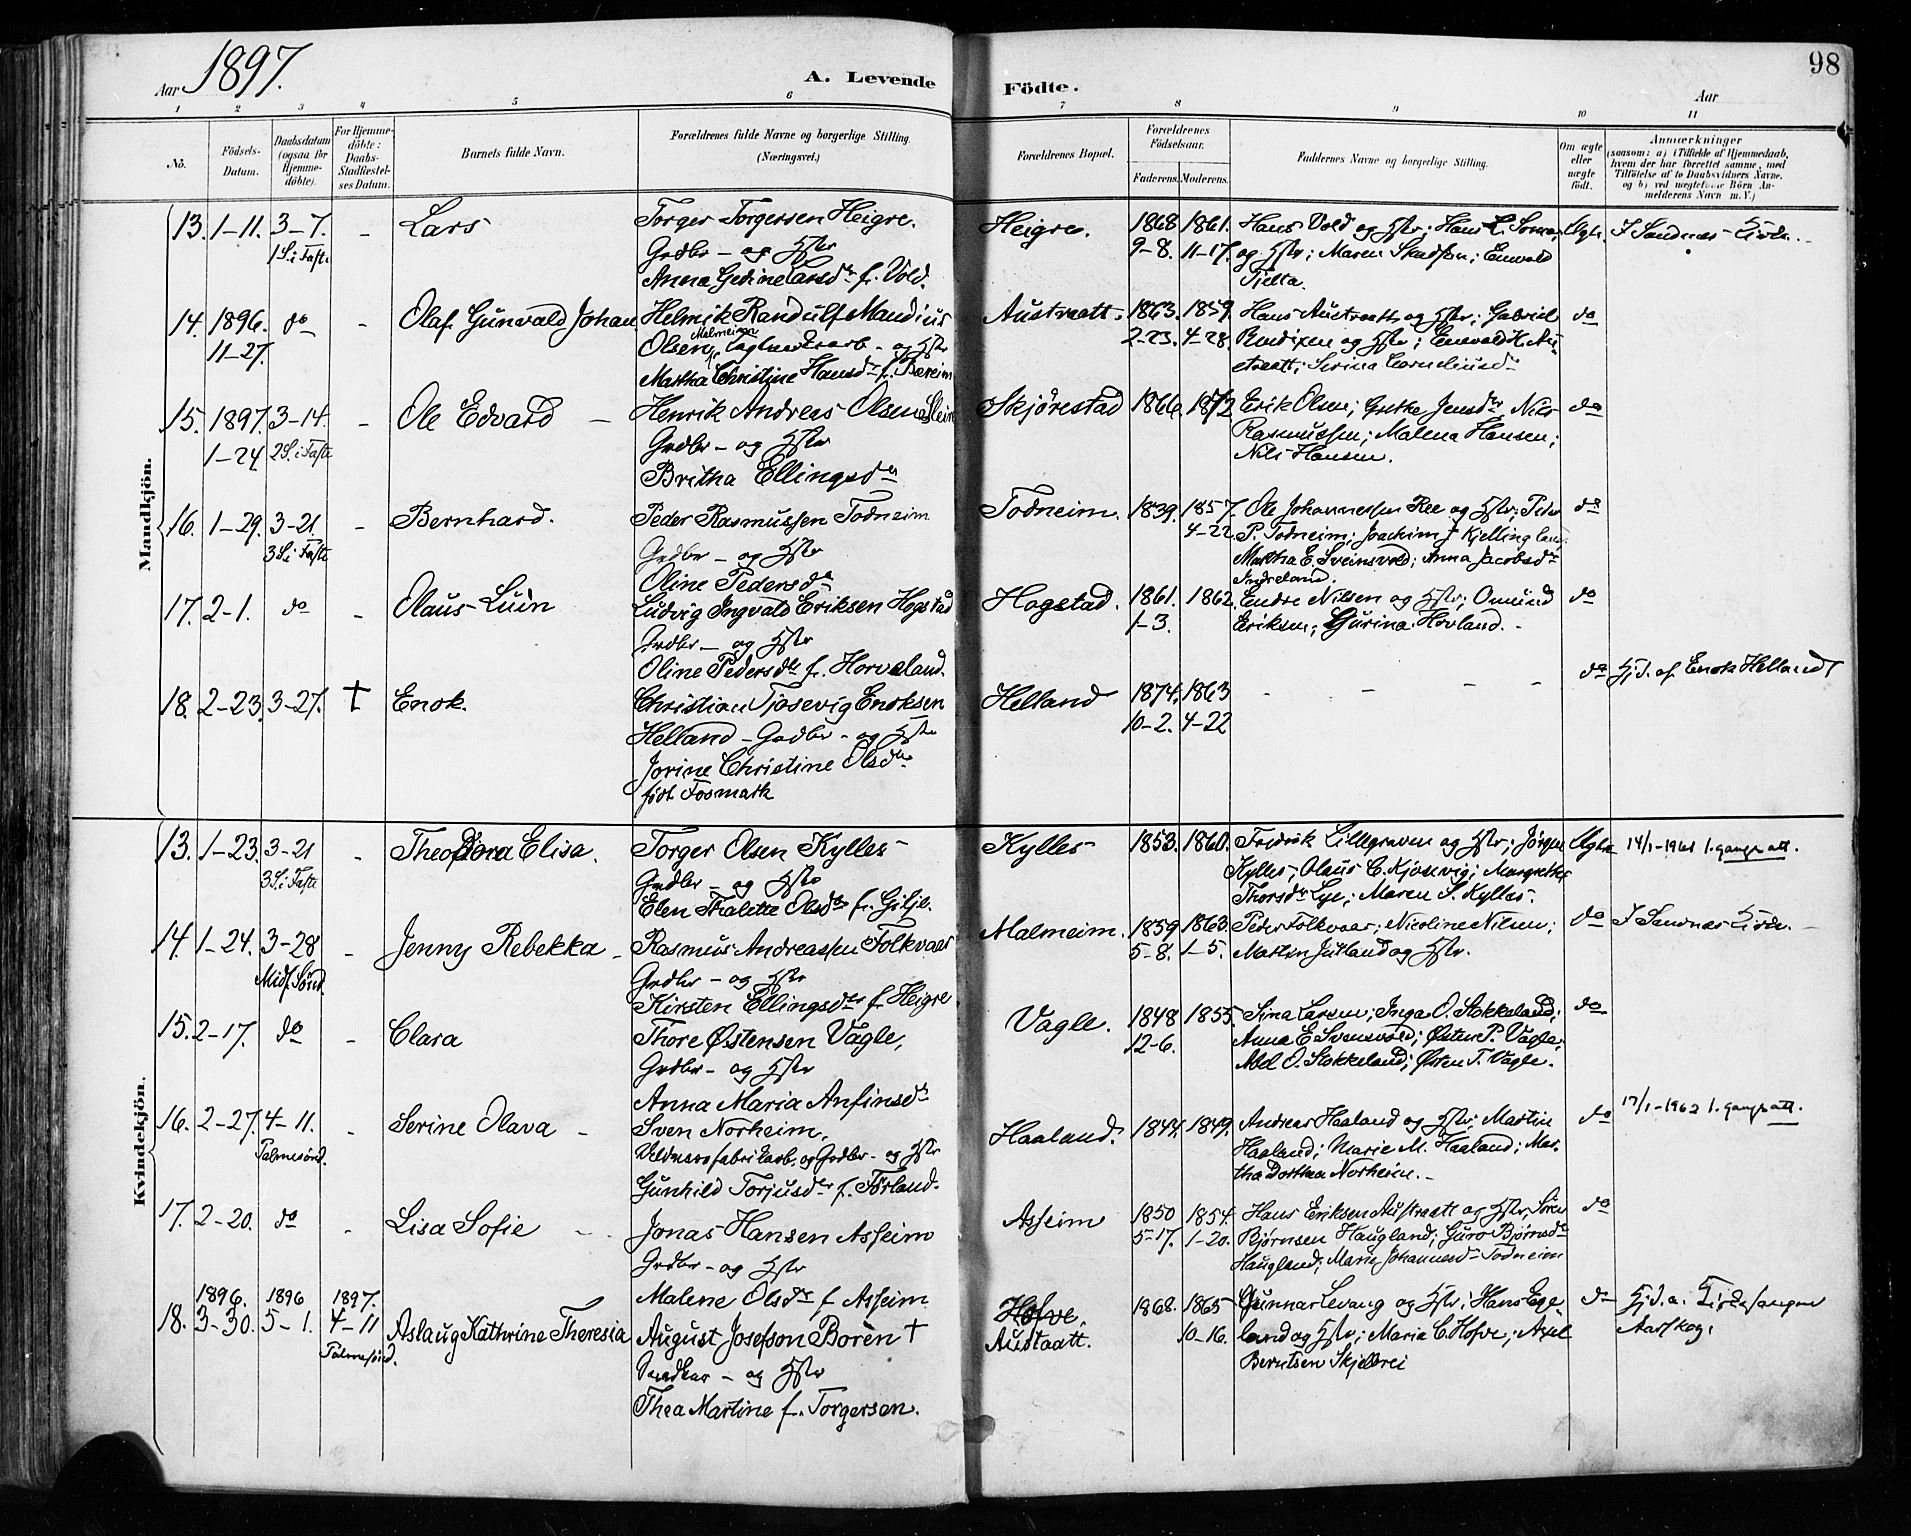 98
Aar 1897.
A. Levende
Födte.
Aar
1 2 3 4 5 6 7 8 9 10 11
No.
Födsels-
Datum.
Daabsdatum
(ogsaa for
Hjemme-
döbte).
For Hjemme-
döbte:
Daabs-
Stadfæstel-
ses Datum.
Barnets fulde Navn.
Forældrenes fulde Navne og borgerlige Stilling
(Næringsvei.)
Forældrenes Bopæl.
Forældrenes
Födselsaar.
Faderens. Moderens.
Faddernes Navne og borgerlige Stilling.
Om ægte
eller
uægte
født.
Anmærkninger
(saasom: a) i Tilfælde af Hjemmedaab,
hvem der har forrettet samme, med
Tilföielse af to Daabsvidners Navne.
og b) ved uægtefödte Börn An-
melderens Navn m. V.)
Mandkjön.
13. 1-11. 3-7. - Lars
1 S. i Faste
Torger Torgersen Heigre.
Grdbr - og Hstr
Anna Gedine Larsdtr f. Vold.
Heigre. 1868 1861.
9-8. 11-17.
Hans Vold og Hstr; Hans L. Soma,
og Hstr; Maren Skadsen; Enevald
Tjelta.
Ægte. I Sandnes Kirke.
14. 1896. do - Olaf Gunvald Johan
11-27.
Helmik Randulf Maudius
Olsen, Malmeim - og Hstr
Martha Christine Hansdtr f. Bæreim
Austraatt. 1863. 1859.
2-23. 4-28.
Hans Austraatt og Hstr; Gabriel
Bendixen og Hstr; Enevald H. Au-
straatt; Serina Corneliusdtr
do
15. 1897. 3-14. - Ole Edvard -
1-24. 2 S. i Faste
Henrik Andreas Olsen
Grdbr - og Hstr
Britha Ellingsdtr
Skjørestad 1866. 1872
Erik Olsen; Grethe Jensdtr, Nils
Rasmussen; Malena Hansen;
Nils Hansen.
do
16. 1-29. 3-21 - Bernhard.
3 S. i Faste
Peder Rasmussen Todneim
Grdbr - og Hstr
Oline Pedersdtr
Todneim. 1839. 1857.
4-22.
Ole Johannessen Ree og Hstr; Peder
P. Todneim; Joachim T Kjelling land
Martha E. Sveinsvold; Anna Jacobsdtr
Indreland.
do
17. 2-1. do - Olaus Luin
Ludvig Ingvald Eriksen Hogstad
Grdbr - og Hstr
Oline Pedersdtr f. Horveland.
Hogstad. 1861. 1862.
1-3.
Endre Nilsen og Hstr; Omund
Eriksen; Gurina Hovland. -
do
18. 2-23. 3-27. † Enok.
Christian Tjosevig Enoksen
Helland - Grdbr - og Hstr
Jorine Christine Olsdtr
født Fosmark
Helland 1874. 1863
10-2. 4-22
- - - -
do Hjd. af Enok Helland
Kvindekjön.
13. 1-23. 3-21 - Theodora Elisa.
3 S. i Faste
Torger Olsen Kylles -
Grdbr - og Hstr
Elen Thalette Olsdtr f. Gilje.
Kylles 1853. 1860.
Fredrik Lillegraven og Hstr; Jørgen
Kylles; Olaus C. Kjosevig; Margrethe
Thorsdtr Lye; Maren S. Kylles.
Ægte 14/1-1961 1. gangs att.
14. 1-24. 3-28 - Jenny Rebekka -
Midf. Sønd.
Rasmus Andreassen Folkvaar
Grdbr - og Hstr
Kirsten Ellingsdtr f. Heigre
Malmeim. 1859 1863.
5-8. 1-5.
Peder Folkvaar; Nicoline Nilsen;
Martin Jutland og Hstr.
do I Sandnes Kirke. -
15. 2-17. do - Clara
Thore Østensen Vagle,
Grdbr - og Hstr
Anna Maria Anfinsdtr
Vagle. 1848 1855.
12-6.
Sina Larsen; Inga O. Stokkeland;
Anna E Svensvold; Østen P. Vagle;
Abel O. Stokkeland; Østen T. Vagle.
do
16. 2-27. 4-11. - Serine Olava -
Palmesønd.
Sven Norheim,
Uldvarefabrikarb. og Grdbr - og Hstr
Gunhild Torjusdtr f. Førland.
Haaland. 1844. 1849.
Andreas Haaland og Hstr; Martin
Haaland; Marie M. Haaland; Mar-
tha Dorthea Norheim. -
do 17/1-1962 1. gangs att.
17. 2-20. do - Lisa Sofie - -
Jonas Hansen Asheim
Grdbr - og Hstr
Malene Olsdtr f. Asheim
Asheim 1850 1854.
5-17. 1-20.
Hans Eriksen Austraatt og Hstr, Sören
Bjørnsen Haugland; Guro Bjørnsdtr
Haugland; Marie Johannesdtr Todneim
do
18. 1896. 3-30. 1896 5-1. 1897. 4-11 Palmesønd. Aslaug Kathrine Theresia
August Josefson Boren †
og Hstr
Thea Martine f. Torgersen.
Hofve,
Austaatt. 1868. 1865
10-16.
Gunnar Levang og Hstr; Hans Ege-
land og Hstr; Maria C. Hofve; Axel
Berntsen Skjelbrei
do Hjd. a. Kirkesanger
Aarskog.